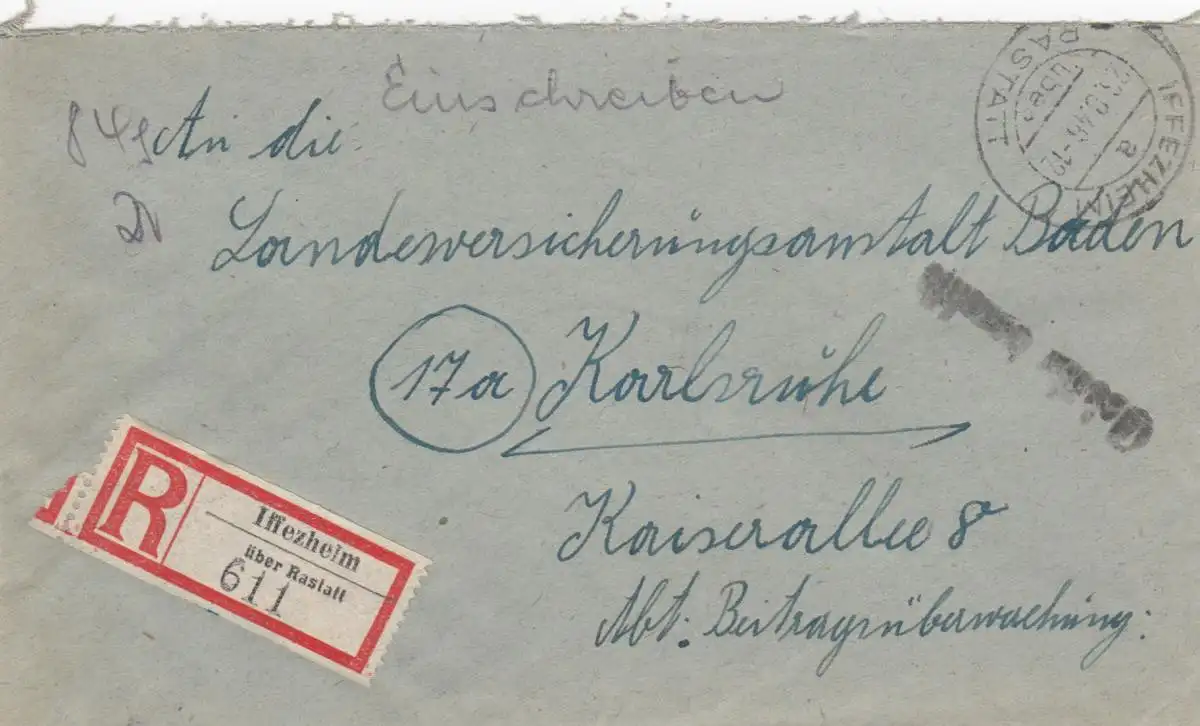 Einschreiben
An die
Landesversicherungsanstalt Baden
17a Karlsruhe
Kaiserallee 8
Abt. Beitragsüberwachung.
R
Iffezheim
über Rastatt
611
IFFEZHEIM
über
RASTATT
a